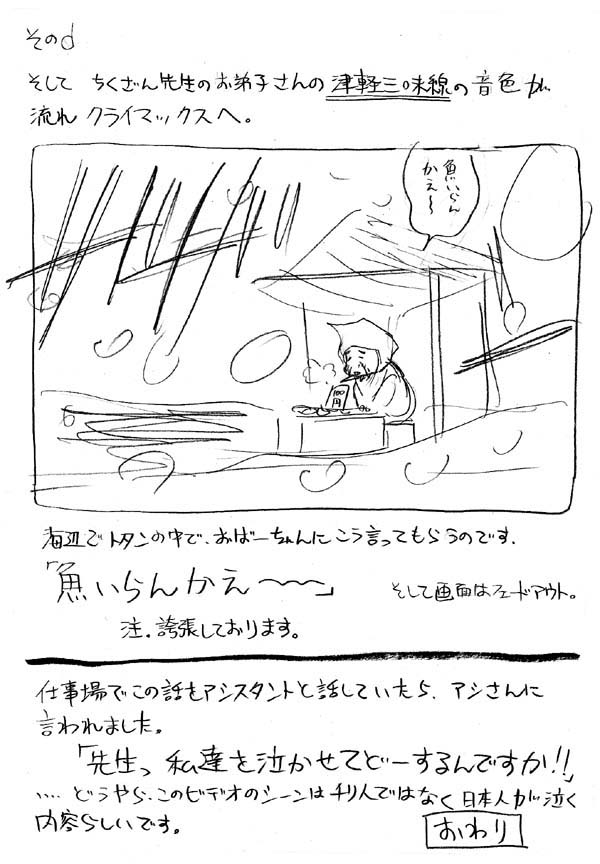 そのd
そして ちくざん先生のお弟子さんの津軽三味線の音色が
流れ クライマックスへ。
魚いらん
かえ〜
100円
海辺でトタンの中で、おばーちゃんにこう言ってもらうのです。
「魚いらんかえ〜〜〜」
そして画面はフェードアウト。
注.誇張しております。
仕事場でこの話をアシスタントと話していたら、アシさんに
言われました。
「先生っ 私達を泣かせてどーするんですか!!」
‥‥ どうやら、このビデオのシーンはチリ人ではなく日本人が泣く
内容らしいです。
おわり